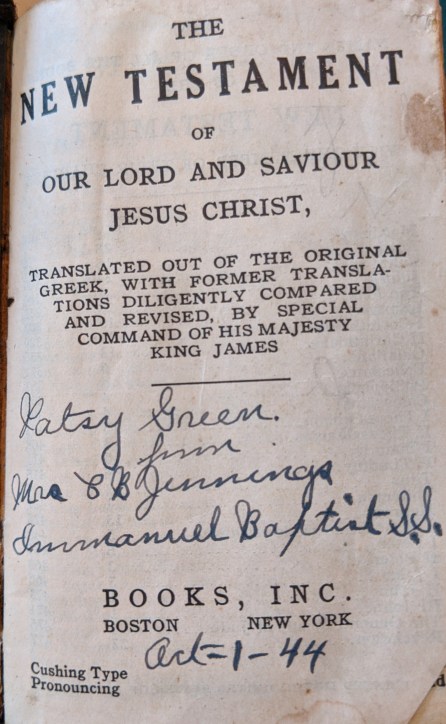 THE
NEW TESTAMENT
OF
OUR LORD AND SAVIOUR
JESUS CHRIST,
TRANSLATED OUT OF THE ORIGINAL
GREEK, WITH FORMER TRANSLA-
TIONS DILIGENTLY COMPARED
AND REVISED, BY SPECIAL
COMMAND OF HIS MAJESTY
KING JAMES
Patsy Green.
from
Mrs C B Jennings
Immanuel Baptist S.S.
BOOKS, INC.
BOSTON NEW YORK
Oct-1-44
Cushing Type
Pronouncing